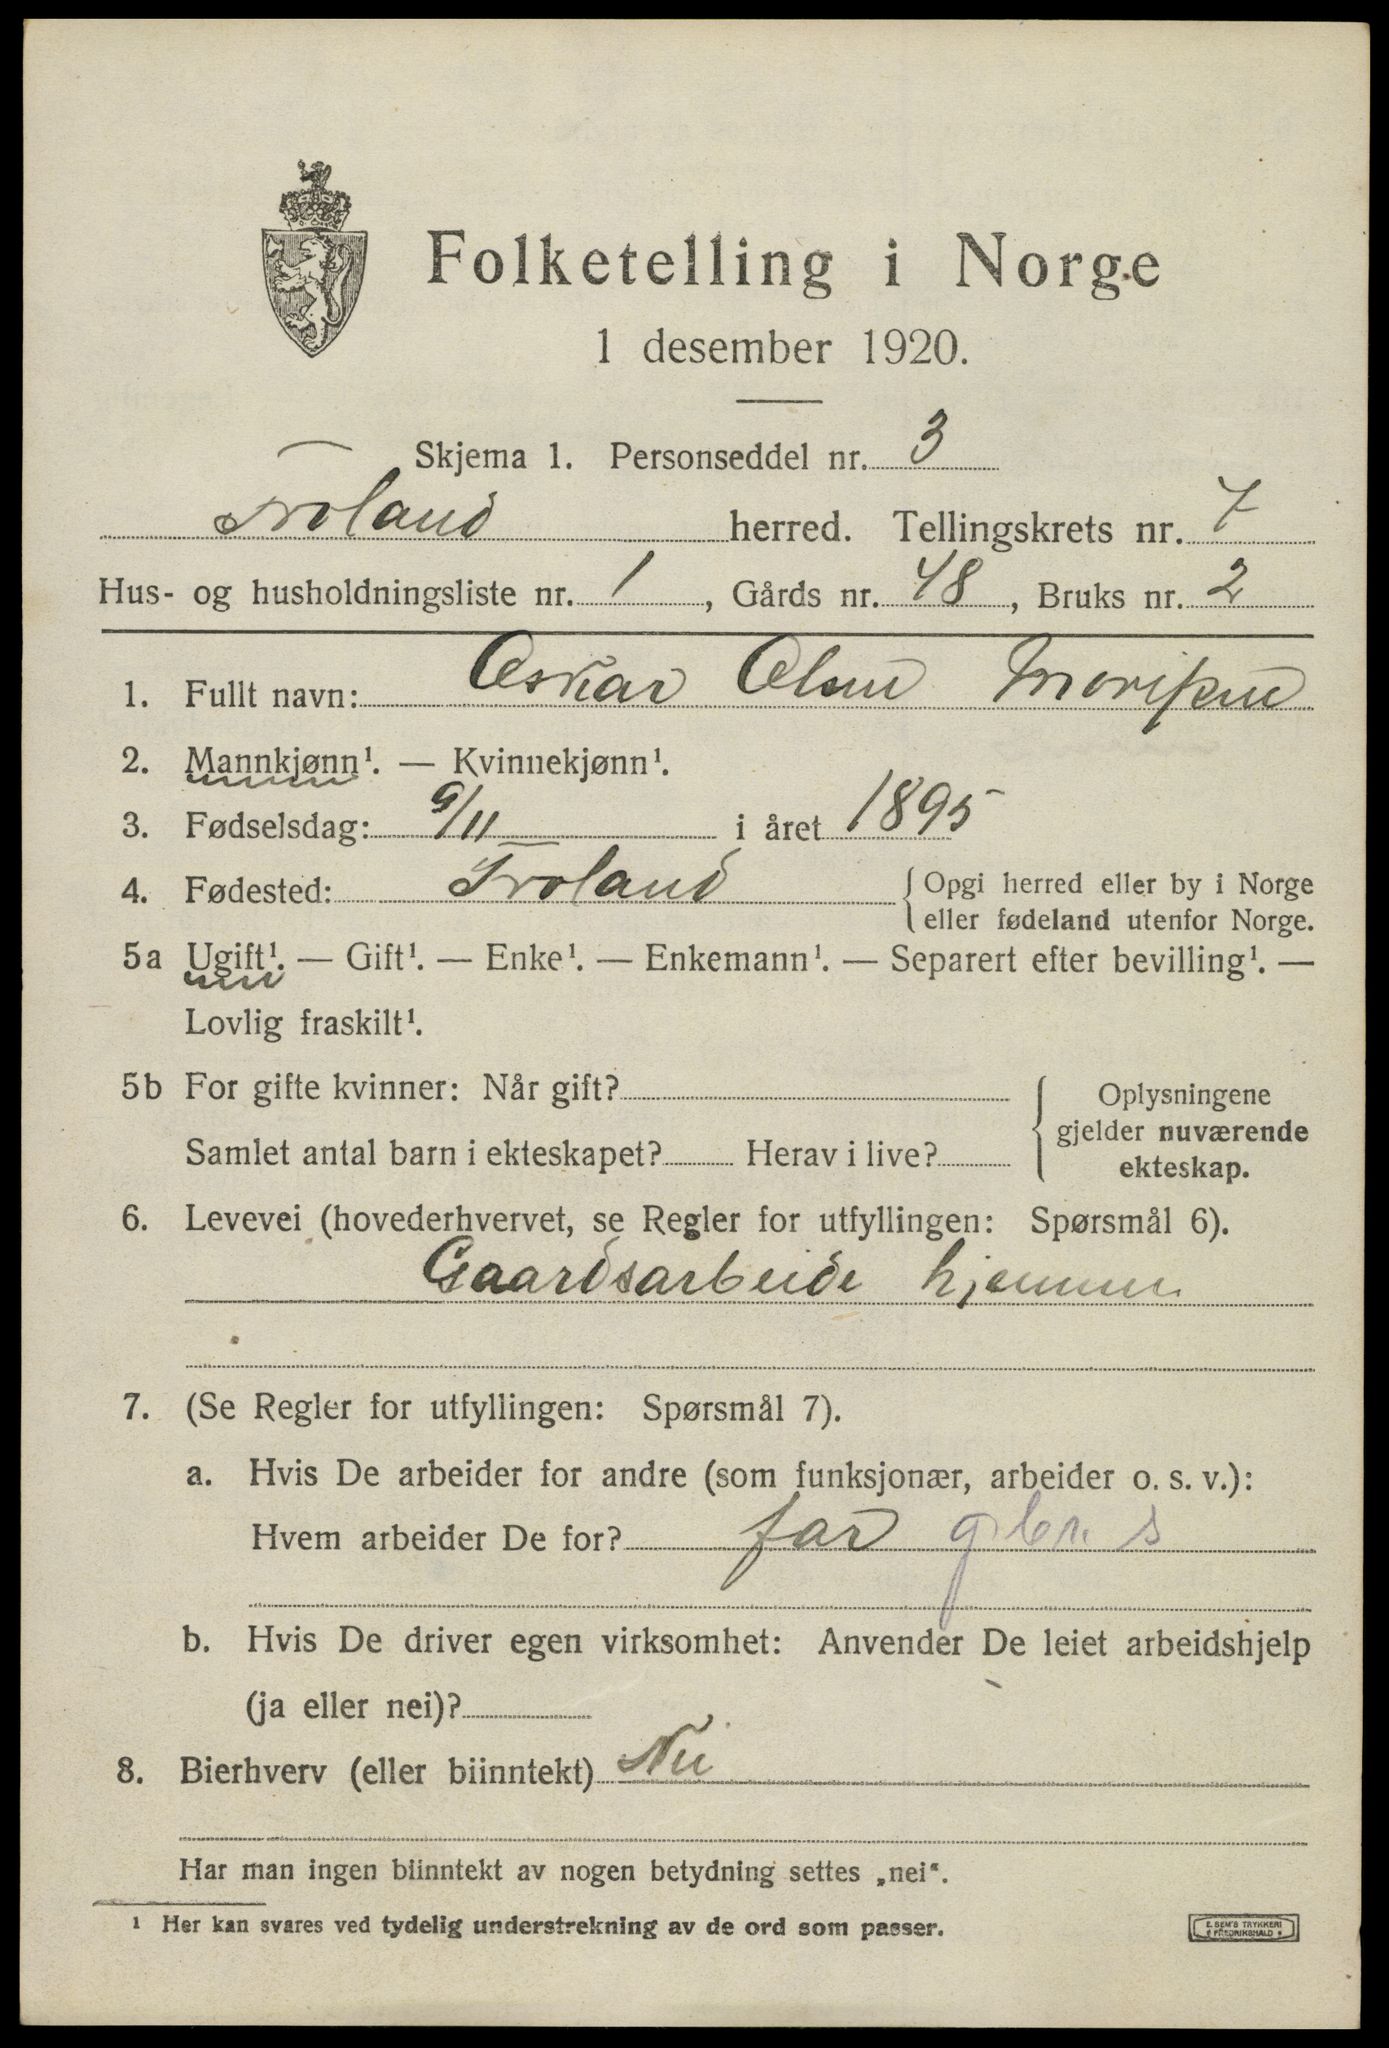 Folketelling i Norge
1 desember 1920.
Skjema 1. Personseddel nr. 3
Froland herred. Tellingskrets nr. 7
Hus- og husholdningsliste nr. 1, Gårds nr. 48, Bruks nr. 2
1. Fullt navn: Oskar Olsen
2. Mannkjønn¹. — Kvinnekjønn¹.
3. Fødselsdag: 9/11 i året 1895
4. Fødested: Froland { Opgi herred eller by i Norge
eller fødeland utenfor Norge.
5a Ugift¹. — Gift¹. — Enke¹. — Enkemann¹. — Separert efter bevilling¹. —
Lovlig fraskilt¹.
5b For gifte kvinner: Når gift?
Samlet antal barn i ekteskapet? Herav i live?
Oplysningene
gjelder nuværende
ekteskap.
6. Levevei (hovederhvervet, se Regler for utfyllingen: Spørsmål 6).
Gaardsarbeide hjemme
7. (Se Regler for utfyllingen: Spørsmål 7).
a. Hvis De arbeider for andre (som funksjonær, arbeider o. s. v.):
Hvem arbeider De for? far gbr. s
b. Hvis De driver egen virksomhet: Anvender De leiet arbeidshjelp
(ja eller nei)?
8. Bierhverv (eller biinntekt) Nei
Har man ingen biinntekt av nogen betydning settes „nei“.
¹ Her kan svares ved tydelig understrekning av de ord som passer.
E. SEM'S TRYKKERI
FREDRIKSHALD